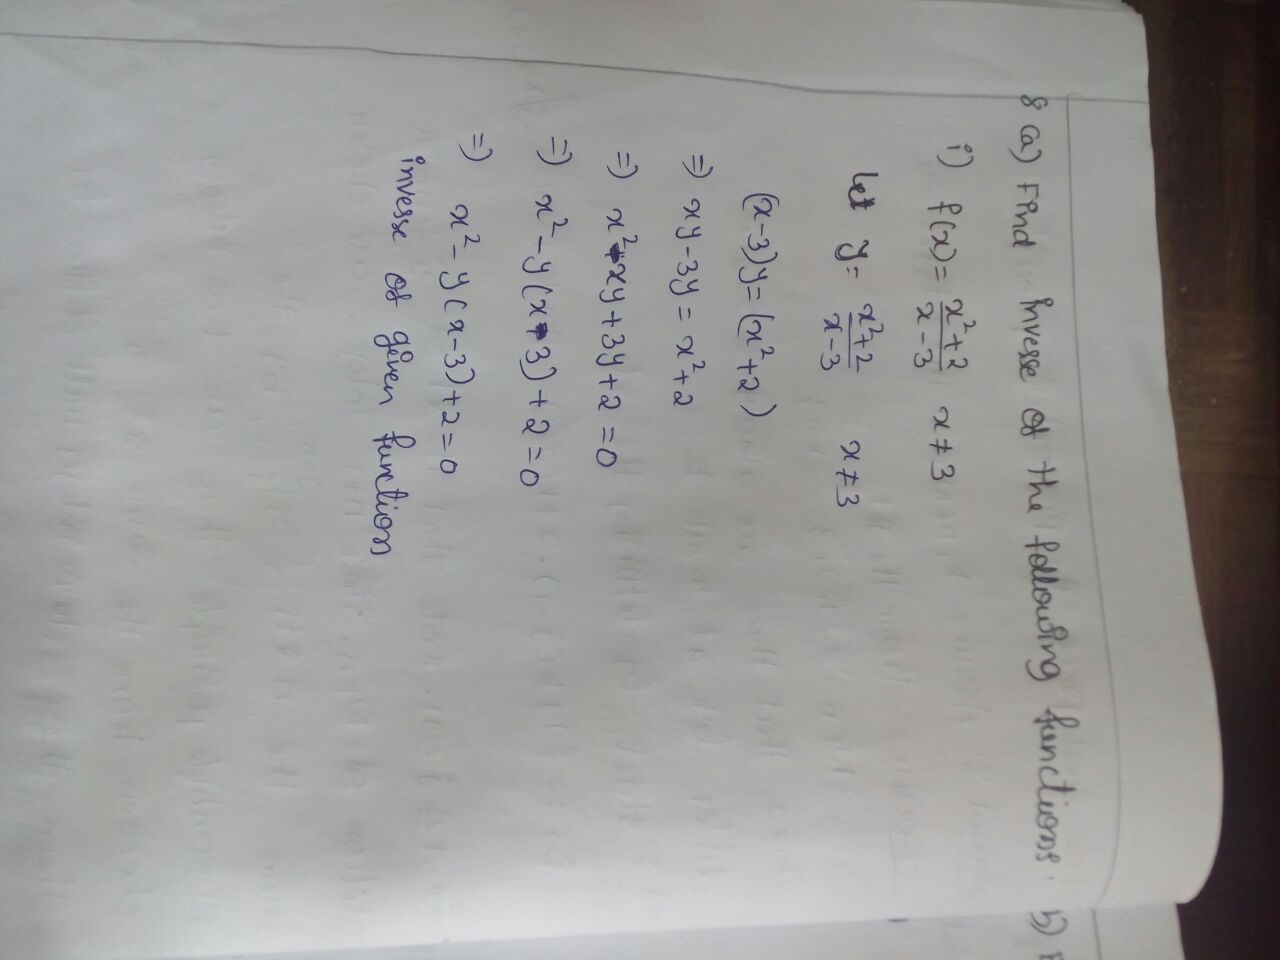 8 (a) Find inverse of the following functions. b)
i) f(x) = x²+2 / x-3 x ≠ 3
Let y = x²+2 / x-3 x ≠ 3
(x-3)y = (x²+2)
⇒ xy-3y = x²+2
⇒ x²-xy+3y+2=0
⇒ x²-y(x-3)+2=0
⇒ x²-y(x-3)+2=0
inverse of given function